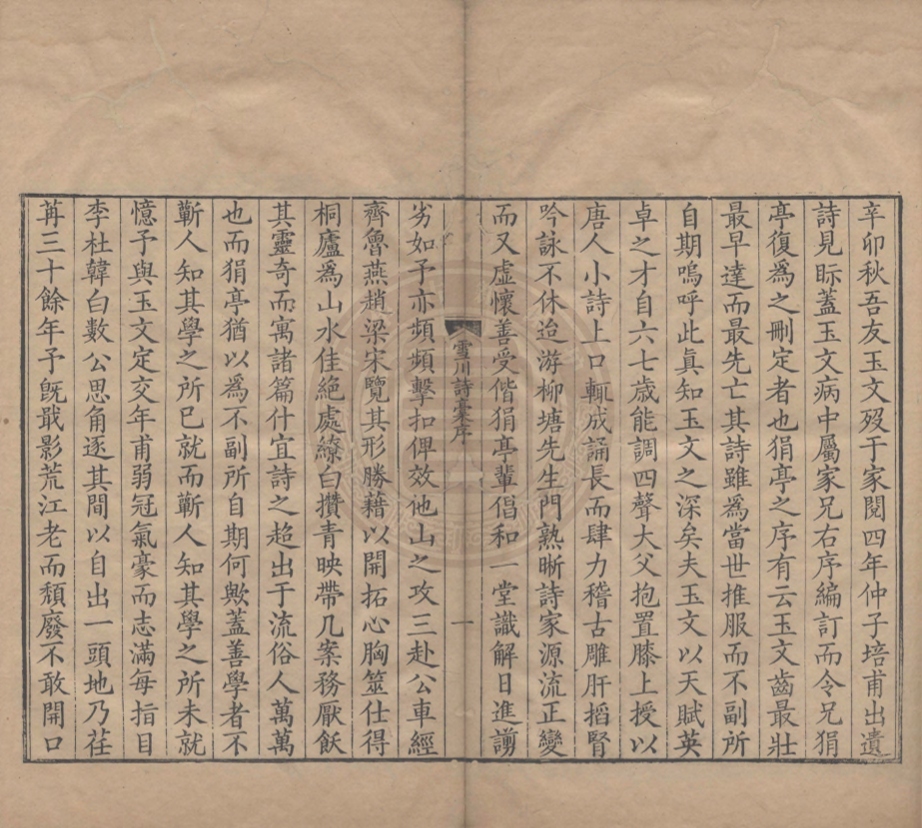 辛卯秋吾友玉文歿于家閱四年仲子培甫出遺
詩見眎蓋玉文病中屬家兄右序編訂而令兄狷
亭復為之刪定者也狷亭之序有云玉文齒最壯
最早達而最先亡其詩雖為當世推服而不副所
自期嗚呼此真知玉文之深矣夫玉文以天賦英
卓之才自六七歲能調四聲大父抱置膝上授以
唐人小詩上口輒成誦長而肆力稽古雕肝搯腎
吟詠不休迨游柳塘先生門熟晰詩家源流正變
而又虛懷善受偕狷亭輩倡和一堂識解日進謭
雪川詩藁序
一
劣如予亦頻頻擊扣俾效他山之攻三赴公車經
齊魯燕趙梁宋覽其形勝藉以開拓心胸筮仕得
桐廬為山水佳絕處繚白攢青映帶几案務厭飫
其靈奇而寓諸篇什宜詩之超出于流俗人萬萬
也而狷亭猶以為不副所自期何歟蓋善學者不
蘄人知其學之所已就而蘄人知其學之所未就
憶予與玉文定交年甫弱冠氣豪而志滿每指目
李杜韓白數公思角逐其間以自出一頭地乃荏
苒三十餘年予既戢影荒江老而頹廢不敢開口